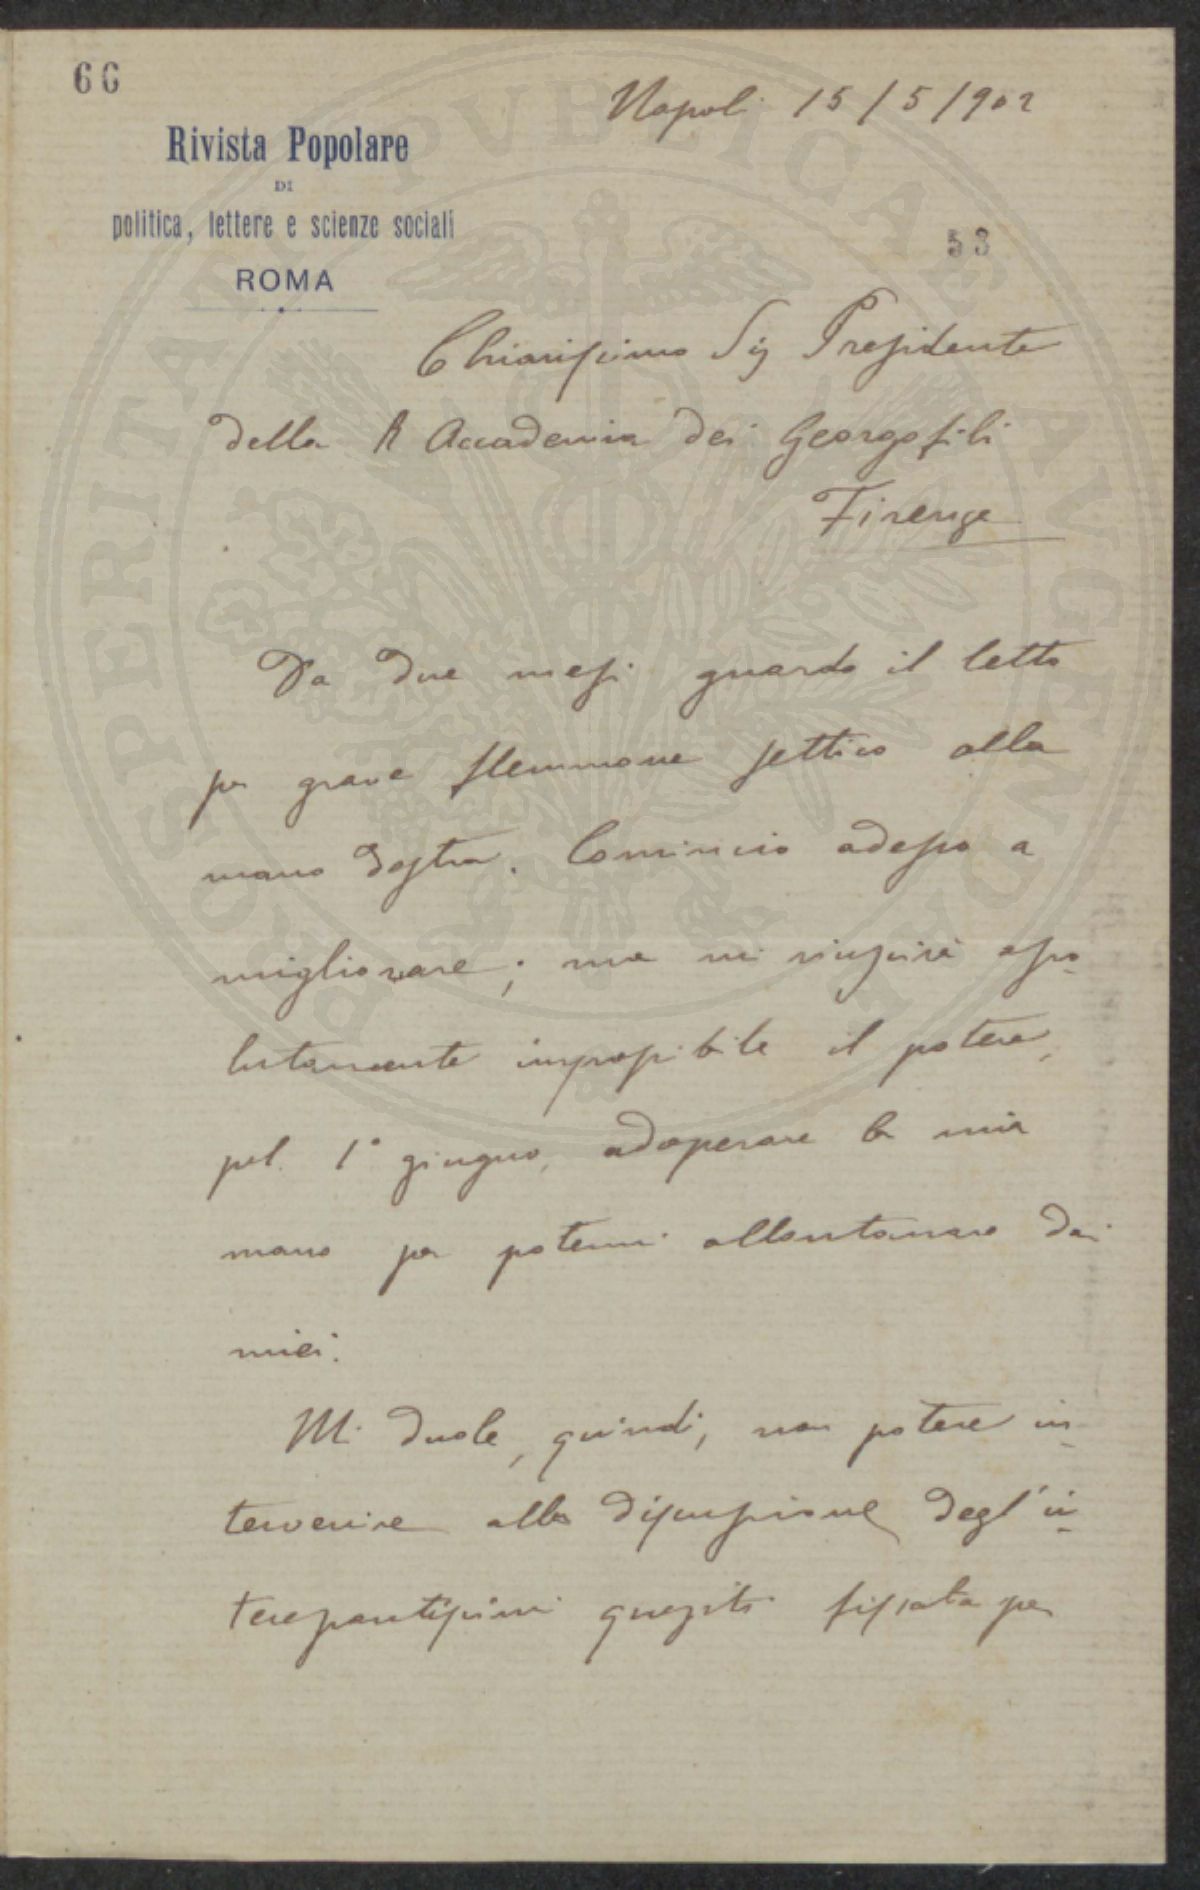 66
Napoli 15/5/902
Rivista Popolare
DI
politica, lettere e scienze sociali
ROMA
53
Chiarissimo Sig Presidente
della R Accademia dei Georgofili
Firenze
Da due mesi guardo il letto
per grave flemmone settico alla
mano destra. Comincio adesso a
migliorare; ma mi riuscirà asso-
lutamente impossibile il potere,
pel 1° giugno, adoperare la mia
mano per potermi allontanare dai
miei.
Mi duole, quindi, non potere in-
tervenire alla discussione degl'in-
teressantissimi quesiti fissata per
PROSPERITATI PVBLICAE AVGENDAE